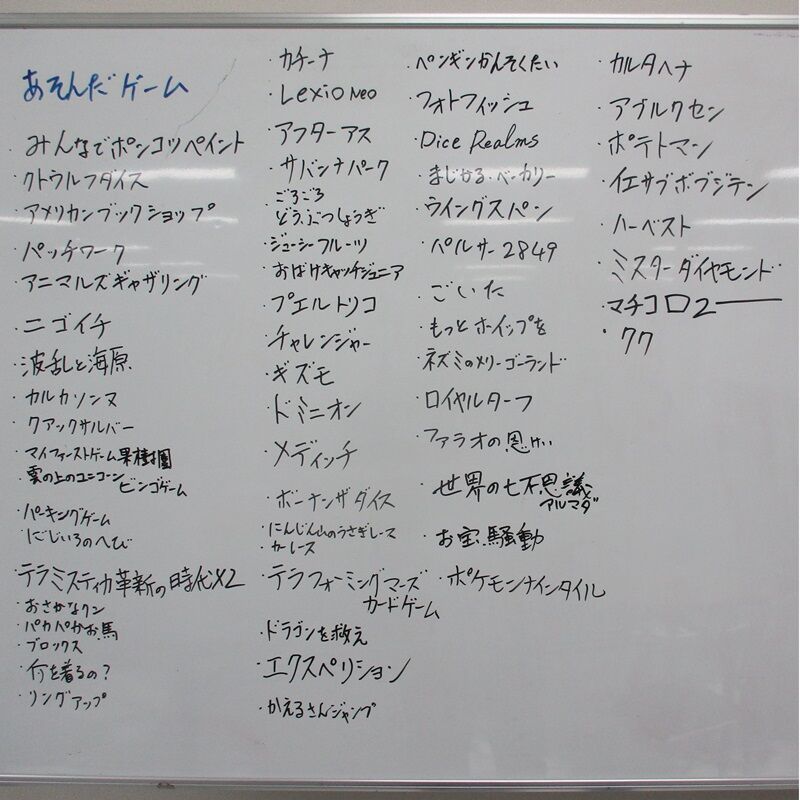 あそんだゲーム
・みんなでポンコツペイント
・クトウルフダイス
・アメリカンブックショップ
・パッチワーク
・アニマルズギャザリング
・ニゴイチ
・波乱と海原
・カルカソンヌ
・クアックサルバー
・マイファーストゲーム果樹園
・雲の上のユニコーン
ビンゴゲーム
・パーキングゲーム
・にじいろのへび
・テラミスティカ革新の時代×2
・おさかなクン
・パカパカお馬
・ブロックス
・何を着るの?
・リングアップ
・カチーナ
・Lexio Neo
・アフターアス
・サバンナパーク
・ごろごろ
どうぶつしょうぎ
・ジューシーフルーツ
・おばけキャッチジュニア
・プエルトリコ
・チャレンジャー
・ギズモ
・ドミニオン
・メディチ
・ボーナンザダイス
・にんじん山のうさぎレース
・カーレース
・テラフォーミングマーズ
カードゲーム
・ドラゴンを救え
・エクスペリション
・かえるさんジャンプ
・ペンギンかんそくたい
・フォトフィッシュ
・Dice Realms
・まじかる・ベーカリー
・ウイングスパン
・ペルサー2849
・ごいた
・もっとホイップを
・ネズミのメリーゴーランド
・ロイヤルターフ
・ファラオの恩けい
・世界の七不思議
アルマダ
・お宝騒動
・ポケモンナインタイル
・カルタヘナ
・アブルクセン
・ポテトマン
・イエサブボブジテン
・ハーベスト
・ミスターダイヤモンド
・マチコロ2
・77